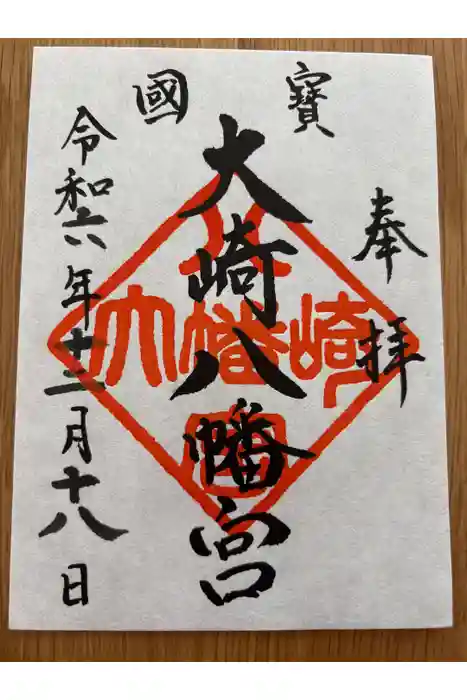 奉拝
寶國
大崎八幡宮
令和六年十二月十八日
大崎
幡